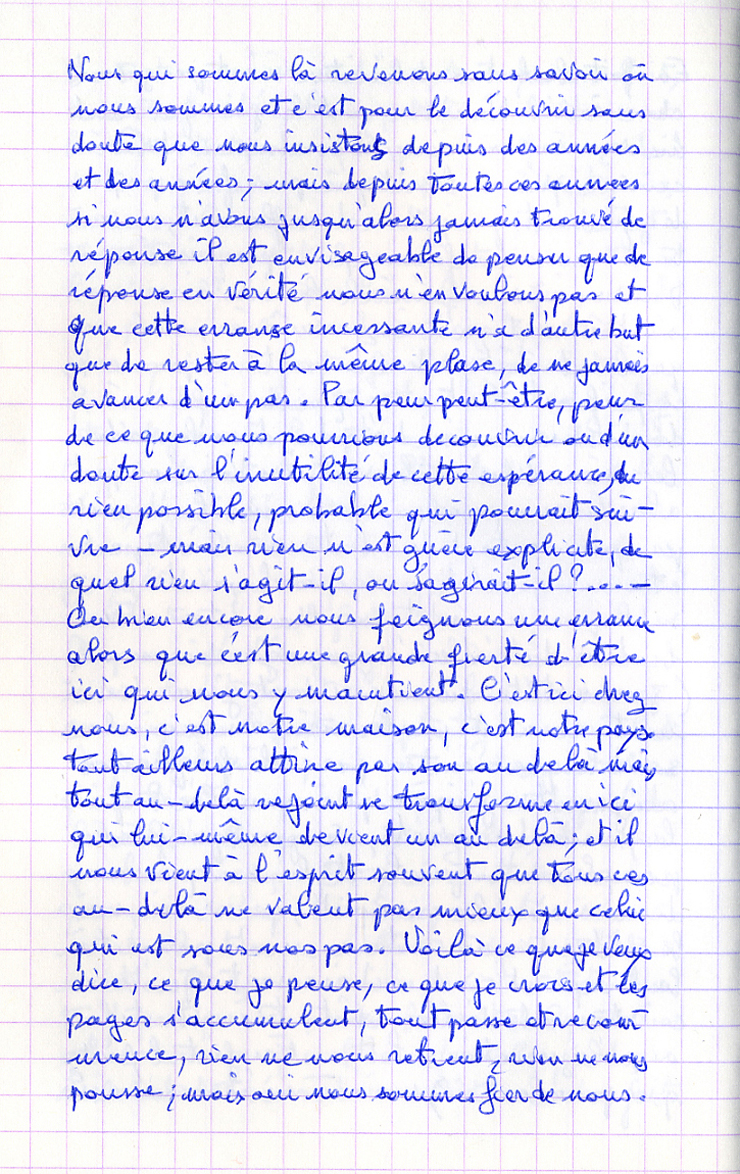 Nous qui sommes là revenons sans savoir où
nous sommes et c'est pour le découvrir sans
doute que nous insistons depuis des années
et des années ; mais depuis toutes ces années
si nous n'avons jusqu'alors jamais trouvé de
réponse il est envisageable de penser que de
réponse en vérité nous n'en voulons pas et
que cette errance incessante n'a d'autre but
que de rester à la même place, de ne jamais
avancer d'un pas. Par peur peut-être, peur
de ce que nous pourrions découvrir ou d'un
doute sur l'inutilité de cette espérance, du
rien possible, probable qui pourrait sui-
vre - mais rien n'est guère explicite, de
quel rien s'agit-il, ou s'agirait-il ?.... -
Ou bien encore nous feignons une errance
alors que c'est une grande fierté d'être
ici qui nous y maintient. C'est ici chez
nous, c'est notre maison, c'est notre pays.
Tout ailleurs attire par son au delà mais
tout au-delà rejoint se transforme en ici
qui lui-même devient un au delà ; et il
nous vient à l'esprit souvent que tous ces
au-delà ne valent pas mieux que celui
qui est sous nos pas. Voilà ce que je veux
dire, ce que je pense, ce que je crois et les
pages s'accumulent, tout passe et recom
mence, rien ne nous retient, rien ne nous
pousse ; mais oui nous sommes fier de nous.